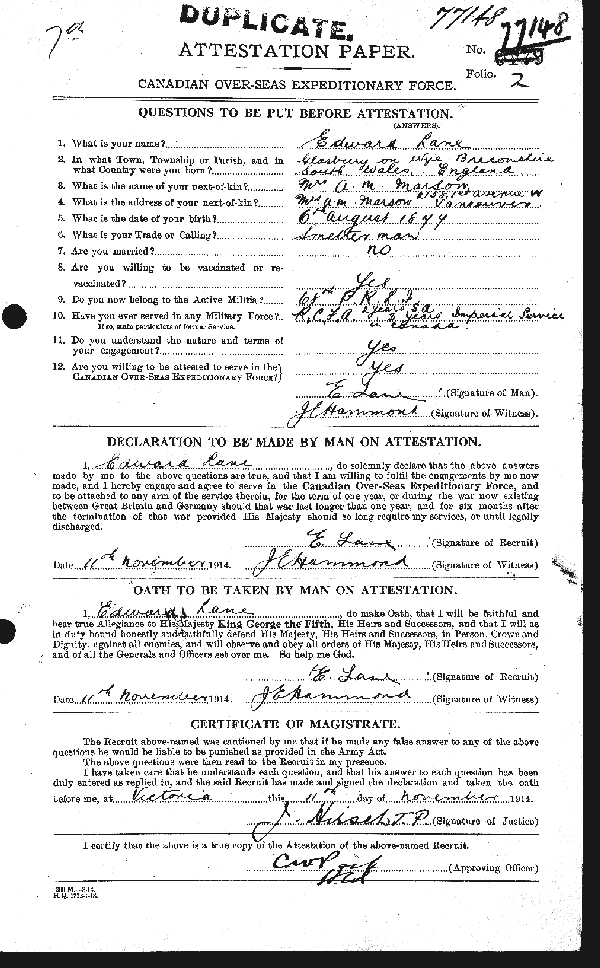 DUPLICATE.
77148
77148
7th
ATTESTATION PAPER.
No.
Folio. 2
CANADIAN OVER-SEAS EXPEDITIONARY FORCE.
QUESTIONS TO BE PUT BEFORE ATTESTATION.
(ANSWERS).
1. What is your name? Edward Lane
2. In what Town, Township or Parish, and in Glasbury on Wye Breconshire
what Country were you born? South Wales England
3. What is the name of your next-of-kin? Mrs A. M. Marson
4. What is the address of your next-of-kin? Mrs A M. Marson Vancouver
5. What is the date of your birth? 6th August
6. What is your Trade or Calling? Smelter man
7. Are you married? no
8. Are you willing to be vaccinated or re-
vaccinated? Yes
9. Do you now belong to the Active Militia? 68th
10. Have you ever served in any Military Force? 2 years Imperial Service
If so, state particulars of former Service. Canada.
11. Do you understand the nature and terms of
your engagement? Yes
12. Are you willing to be attested to serve in the
CANADIAN OVER-SEAS EXPEDITIONARY FORCE? Yes
E Lane (Signature of Man).
J E Hammond (Signature of Witness).
DECLARATION TO BE MADE BY MAN ON ATTESTATION.
I, Edward Lane, do solemnly declare that the above answers
made by me to the above questions are true, and that I am willing to fulfil the engagements by me now
made, and I hereby engage and agree to serve in the Canadian Over-Seas Expeditionary Force, and
to be attached to any arm of the service therein, for the term of one year, or during the war now existing
between Great Britain and Germany should that war last longer than one year, and for six months after
the termination of that war provided His Majesty should so long require my services, or until legally
discharged.
E Lane (Signature of Recruit)
Date 11th November 1914. J E Hammond (Signature of Witness)
OATH TO BE TAKEN BY MAN ON ATTESTATION.
I, Edward Lane, do make Oath, that I will be faithful and
bear true Allegiance to His Majesty King George the Fifth, His Heirs and Successors, and that I will as
in duty bound honestly and faithfully defend His Majesty, His Heirs and Successors, in Person, Crown and
Dignity, against all enemies, and will observe and obey all orders of His Majesty, His Heirs and Successors,
and of all the Generals and Officers set over me. So help me God.
E. Lane (Signature of Recruit)
Date 11th November 1914. J E Hammond (Signature of Witness)
CERTIFICATE OF MAGISTRATE.
The Recruit above-named was cautioned by me that if he made any false answer to any of the above
questions he would be liable to be punished as provided in the Army Act.
The above questions were then read to the Recruit in my presence.
I have taken care that he understands each question, and that his answer to each question has been
duly entered as replied to, and the said Recruit has made and signed the declaration and taken the oath
before me, at Victoria this 11th day of November 1914.
J. P. (Signature of Justice)
I certify that the above is a true copy of the Attestation of the above-named Recruit.
(Approving Officer)